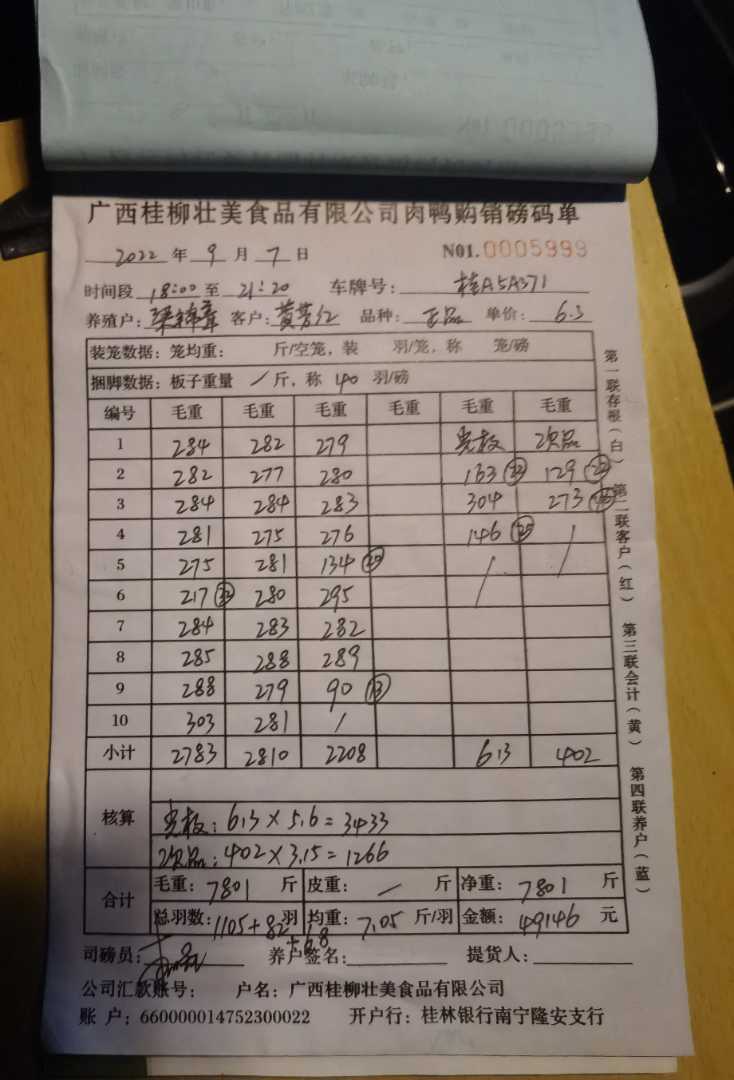 广西桂柳壮美食品有限公司肉鸭购销磅码单
2022 年 9 月 7 日 N01.0005999
时间段 18:00 至 21:20 车牌号: 桂A5A371
养殖户: 梁锦章 客户: 黄芳红 品种: 正品 单价: 6.3
装笼数据: 笼均重: 斤/空笼, 装 羽/笼, 称 笼/磅
捆脚数据: 板子重量 / 斤, 称 40 羽/磅
编号 毛重 毛重 毛重 毛重 毛重 毛重
1 284 282 279 光板 次品
2 282 277 280 163 129
3 284 284 283 304 273
4 281 275 276 146 (25) /
5 275 281 134 / 
6 217 280 295
7 284 283 282
8 285 288 289
9 288 279 90 (13)
10 303 281 /
小计 2783 2810 2208 613 402
核算
光板: 613 × 5.6 = 3433
次品: 402 × 3.15 = 1266
合计 毛重: 7801 斤 皮重: / 斤 净重: 7801 斤
总羽数: 1105+82 羽 均重: 7.05 斤/羽 金额: 49146 元
+68
司磅员: 养户签名: 提货人:
公司汇款账号: 户名: 广西桂柳壮美食品有限公司
账 户: 660000014752300022 开户行: 桂林银行南宁隆安支行
第一联存根(白) 第二联客户(红) 第三联会计(黄) 第四联养户(蓝)